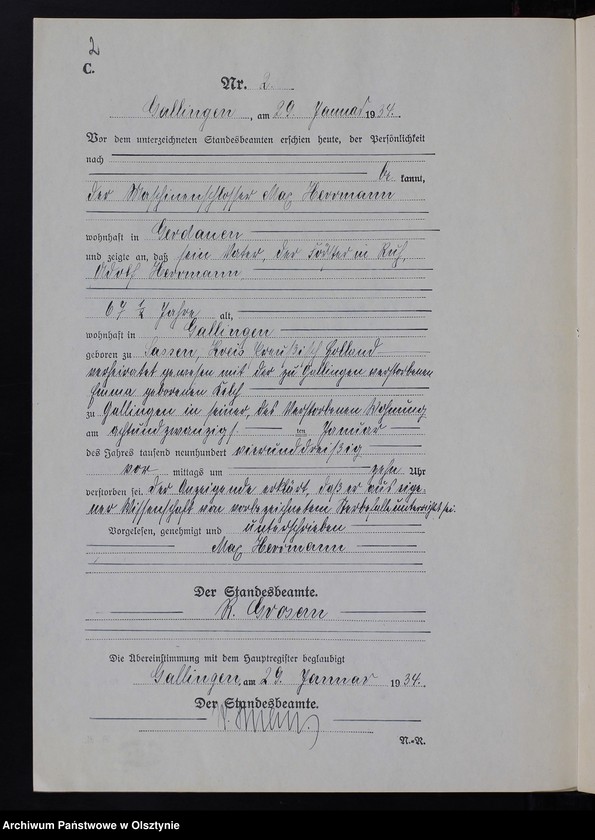 2
C.
Nr. 2.
Gallingen, am 29. Januar 1934.
Vor dem unterzeichneten Standesbeamten erschien heute, der Persönlichkeit
nach
be kannt,
der Maschinenschlosser Max Herrmann
wohnhaft in Gerdauen
und zeigte an, daß sein Vater, der in Ruh.
Adolf Herrmann
67 1/2 Jahre alt,
wohnhaft in Gallingen
geboren zu Sassen, Kreis Preußisch Holland
verheiratet gewesen mit der zu Gallingen verstorbenen
Emma geborenen
zu Gallingen in seiner, des Verstorbenen Wohnung
am achtundzwanzigs ten Januar
des Jahres tausend neunhundert vierunddreißig
vor mittags um zehn Uhr
verstorben sei. Der Anzeigende erklärt, daß er aus eige-
ner Wissenschaft von vorbezeichnetem Sterbefalle unterrichtet sei.
Vorgelesen, genehmigt und unterschrieben
Max Herrmann
Der Standesbeamte.
R. Grosem
Die Übereinstimmung mit dem Hauptregister beglaubigt
Gallingen, am 29. Januar 1934.
Der Standesbeamte.
N.-R.
Archiwum Państwowe w Olsztynie